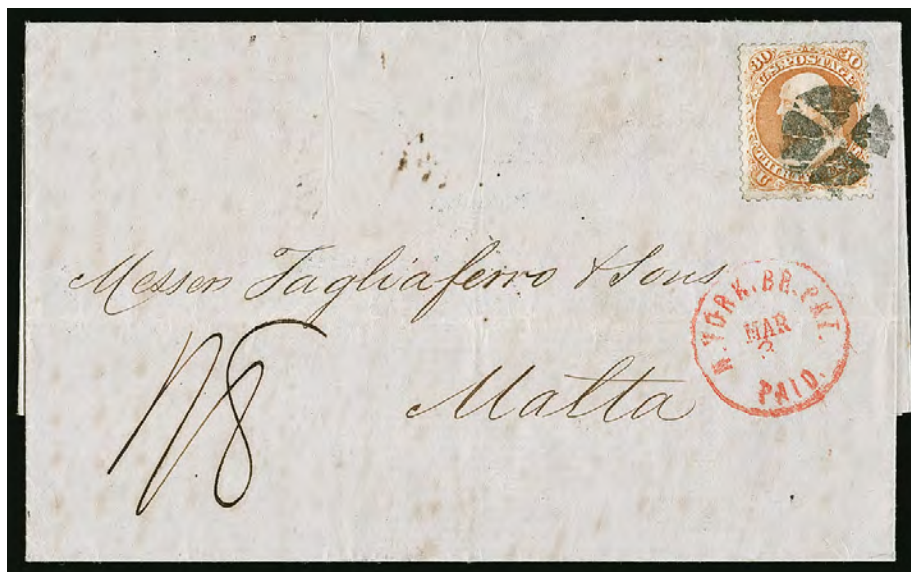 30 30
U.S. POSTAGE
Messrs Tagliaferro & Sons
Malta
N. YORK. BR. PKT.
MAR
PAID.